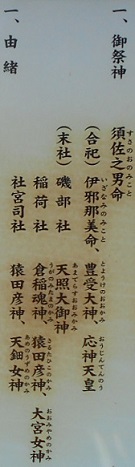 一、御祭神
須佐之男命
すさのおのみこと
（合祀）伊邪那美命、豊受大神、応神天皇
いざなみのみこと とようけのおおかみ おうじんてんのう
（末社）磯部社 天照大御神
あまてらすおおみかみ
稲荷社 倉稲魂神、猿田彦神、大宮女神
うがのみたまのかみ さるたひこのかみ おおみやめのかみ
社宮司社 猿田彦神、天鈿女神
あめのうずめのかみ
一、由緒